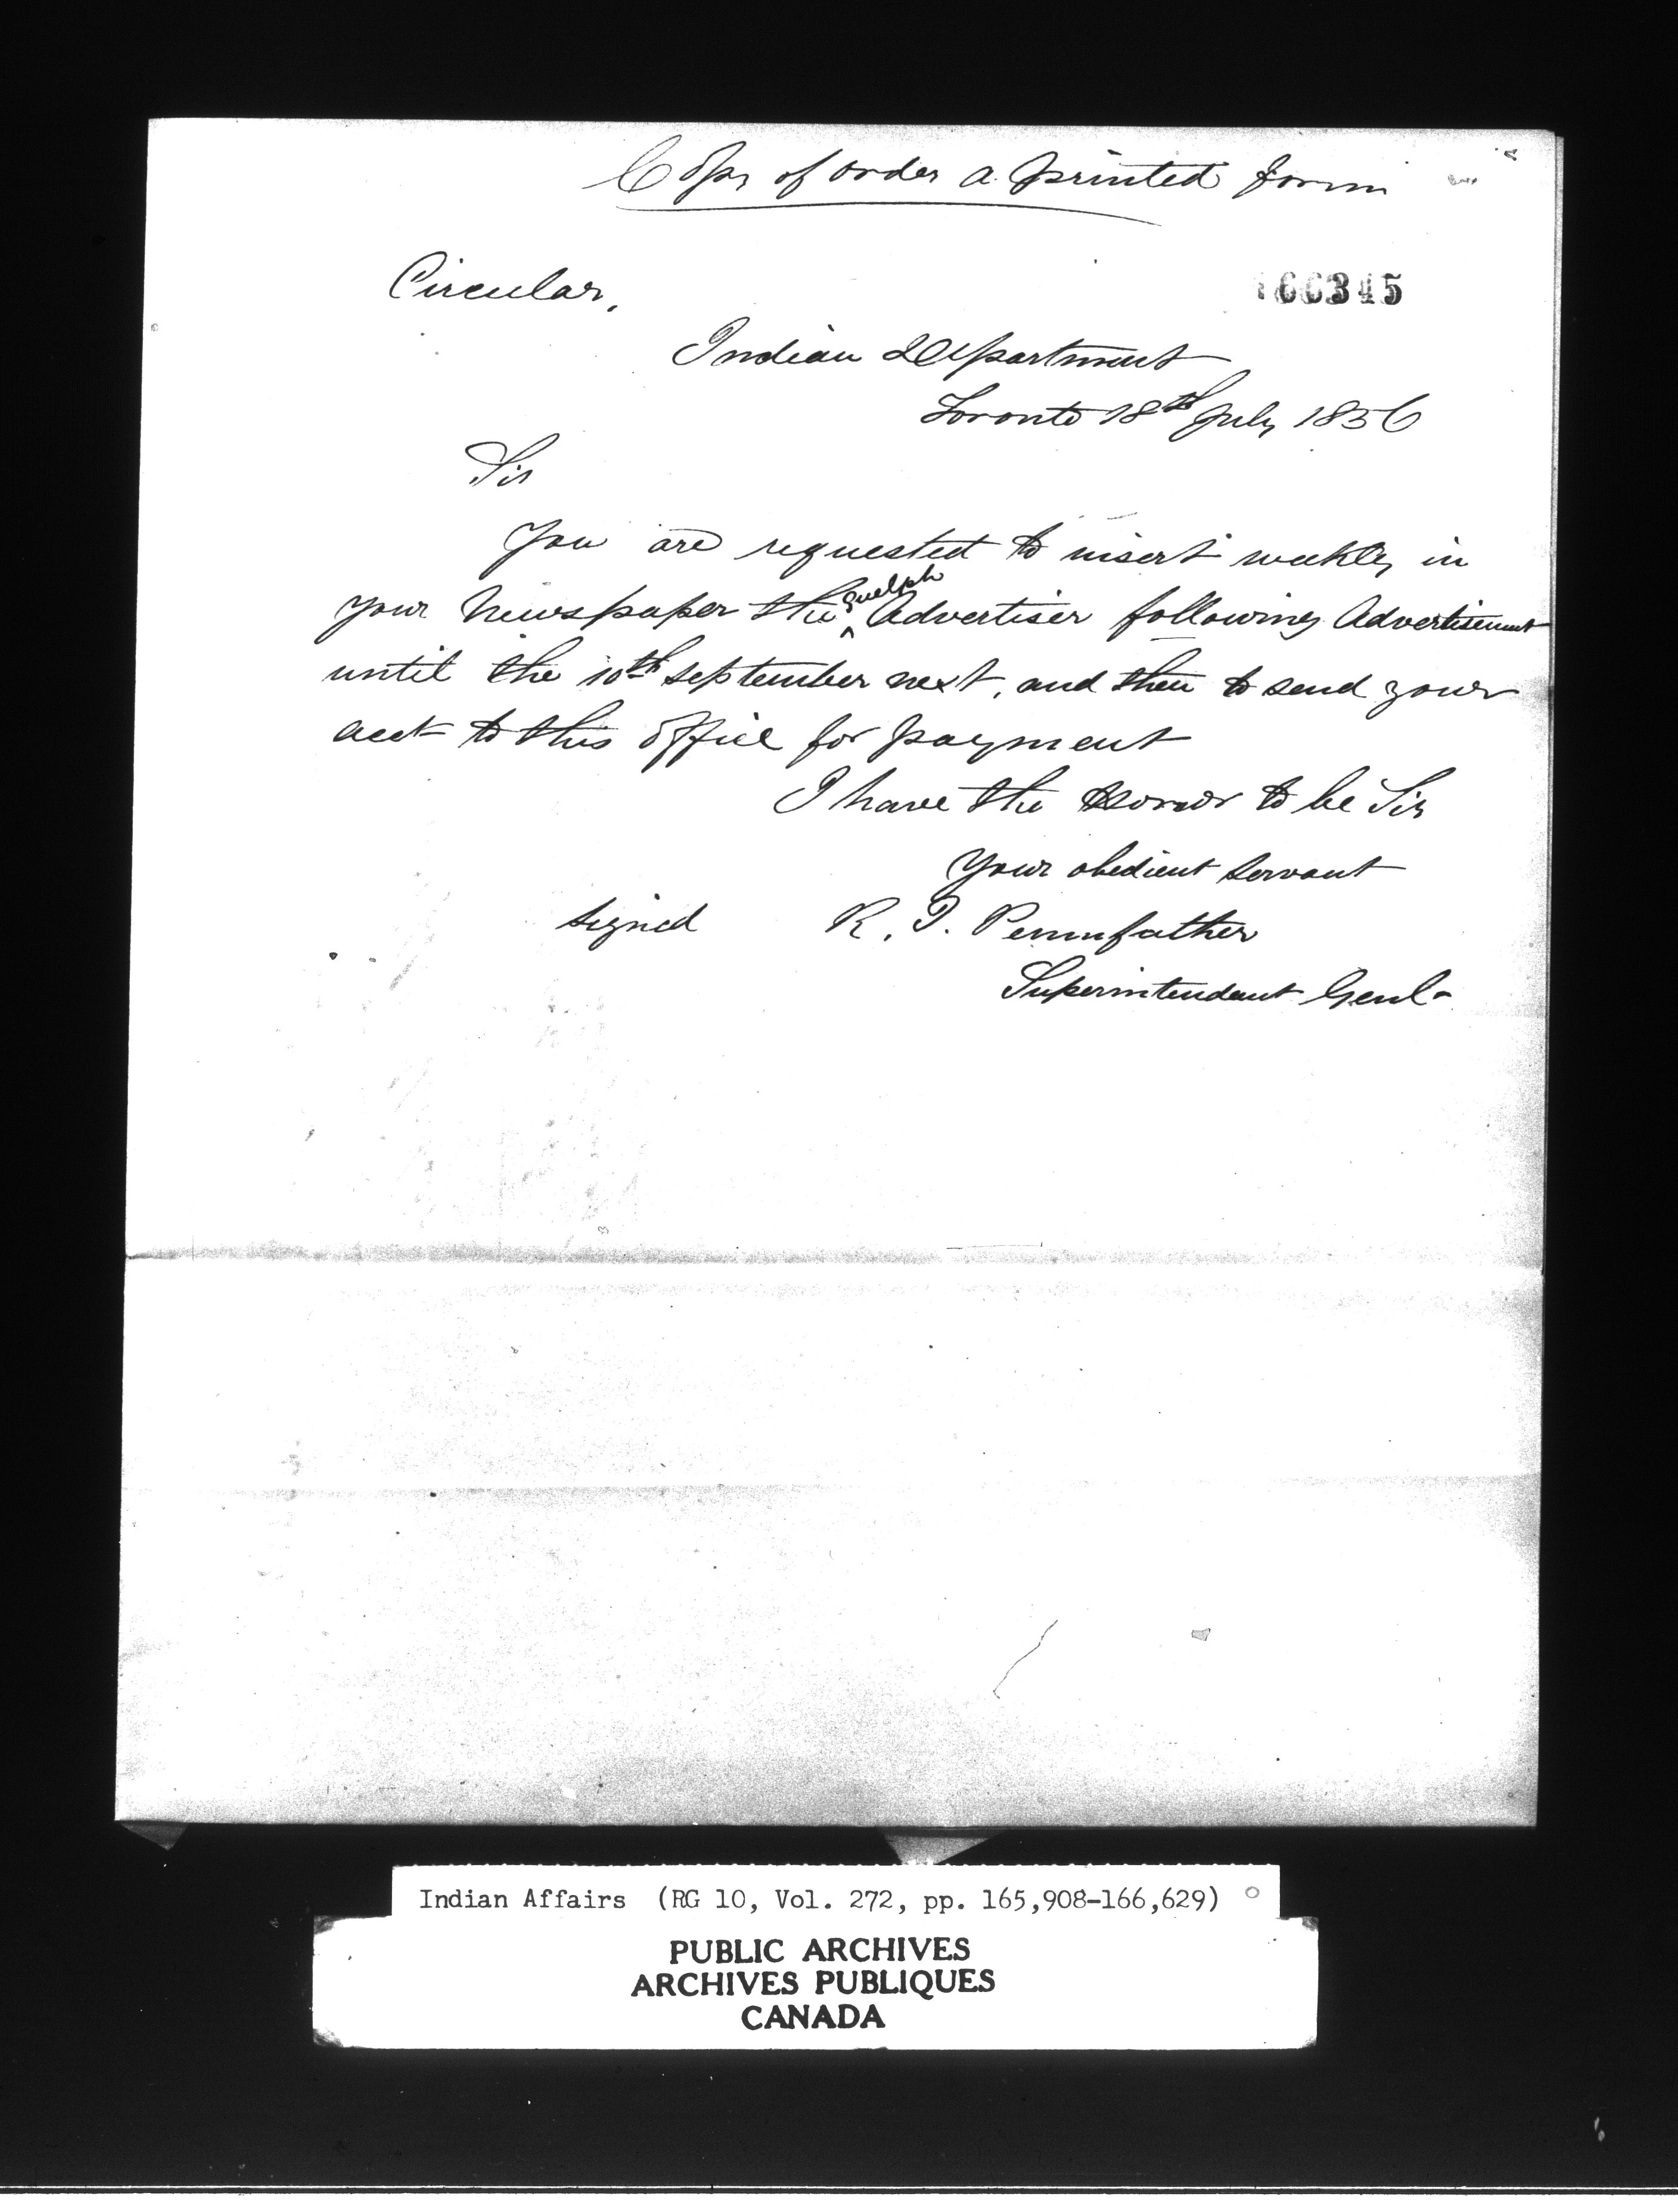 Copy of order a printed form
Circular,
166345
Indian Department
Toronto 18th July 1856
Sir
You are requested to insert weekly in
your Newspaper the Guelph Advertiser following Advertisement
until the 10th September next, and then to send your
acct to this office for payment
I have the Honor to be Sir
Your obedient Servant
Signed R. T. Pennfather
Superintendant Genl-
Indian Affairs (RG 10, Vol. 272, pp. 165,908-166,629)
PUBLIC ARCHIVES
ARCHIVES PUBLIQUES
CANADA